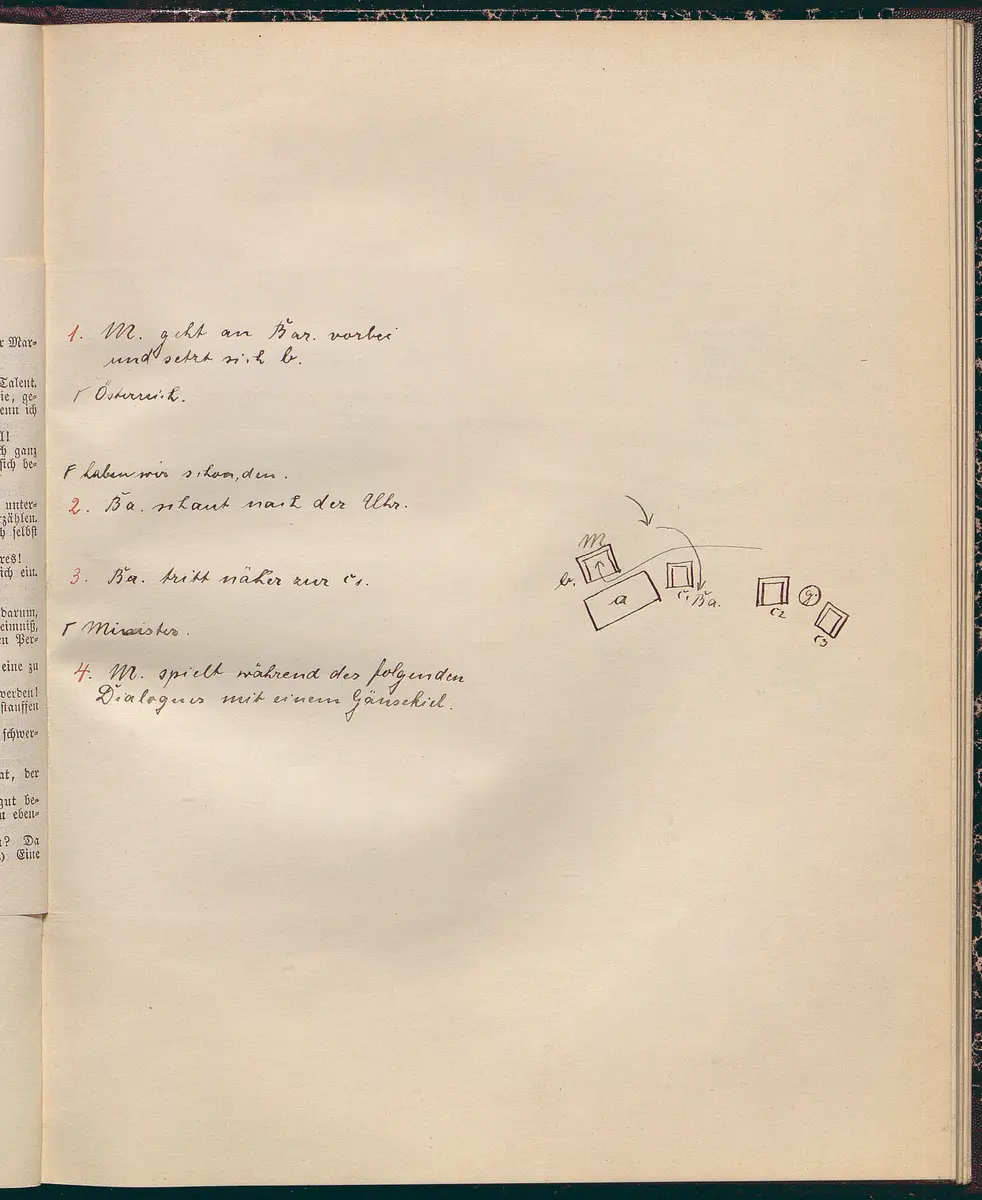 r Mar⸗
Talent.
ie, ge⸗
enn ich
ll!
ch ganz
sich be⸗
unter⸗
rzählen.
h selbst
res!
ich ein.
darum,
eimniß,
en Per⸗
eine zu
werden!
stauffen
schwer⸗
at, der
gut be⸗
u eben⸗
n? Da
.) Eine
1. M. geht an Bar. vorbei
und setzt sich b.
Γ Österreich.
Γ haben wir schon, den.
2. Ba. schaut nach der Uhr.
3. Ba. tritt näher zur c1.
Γ Minister.
4. M. spielt während des folgenden
Dialogues mit einem Gänsekiel.
M
b.
a
c1
Ba.
c2
g.
c3